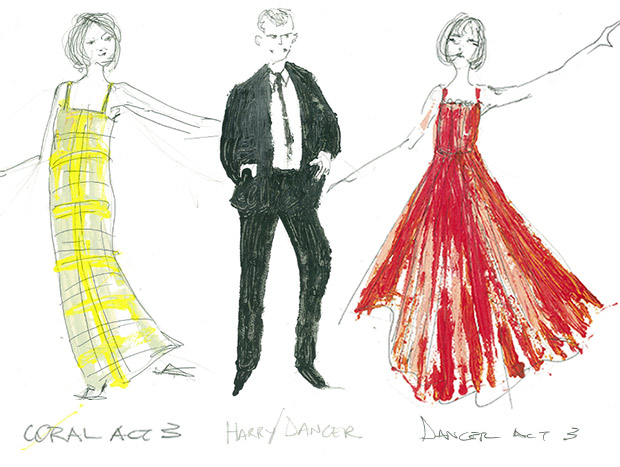 CORAL ACT 3
HARRY/DANCER
DANCER ACT 3